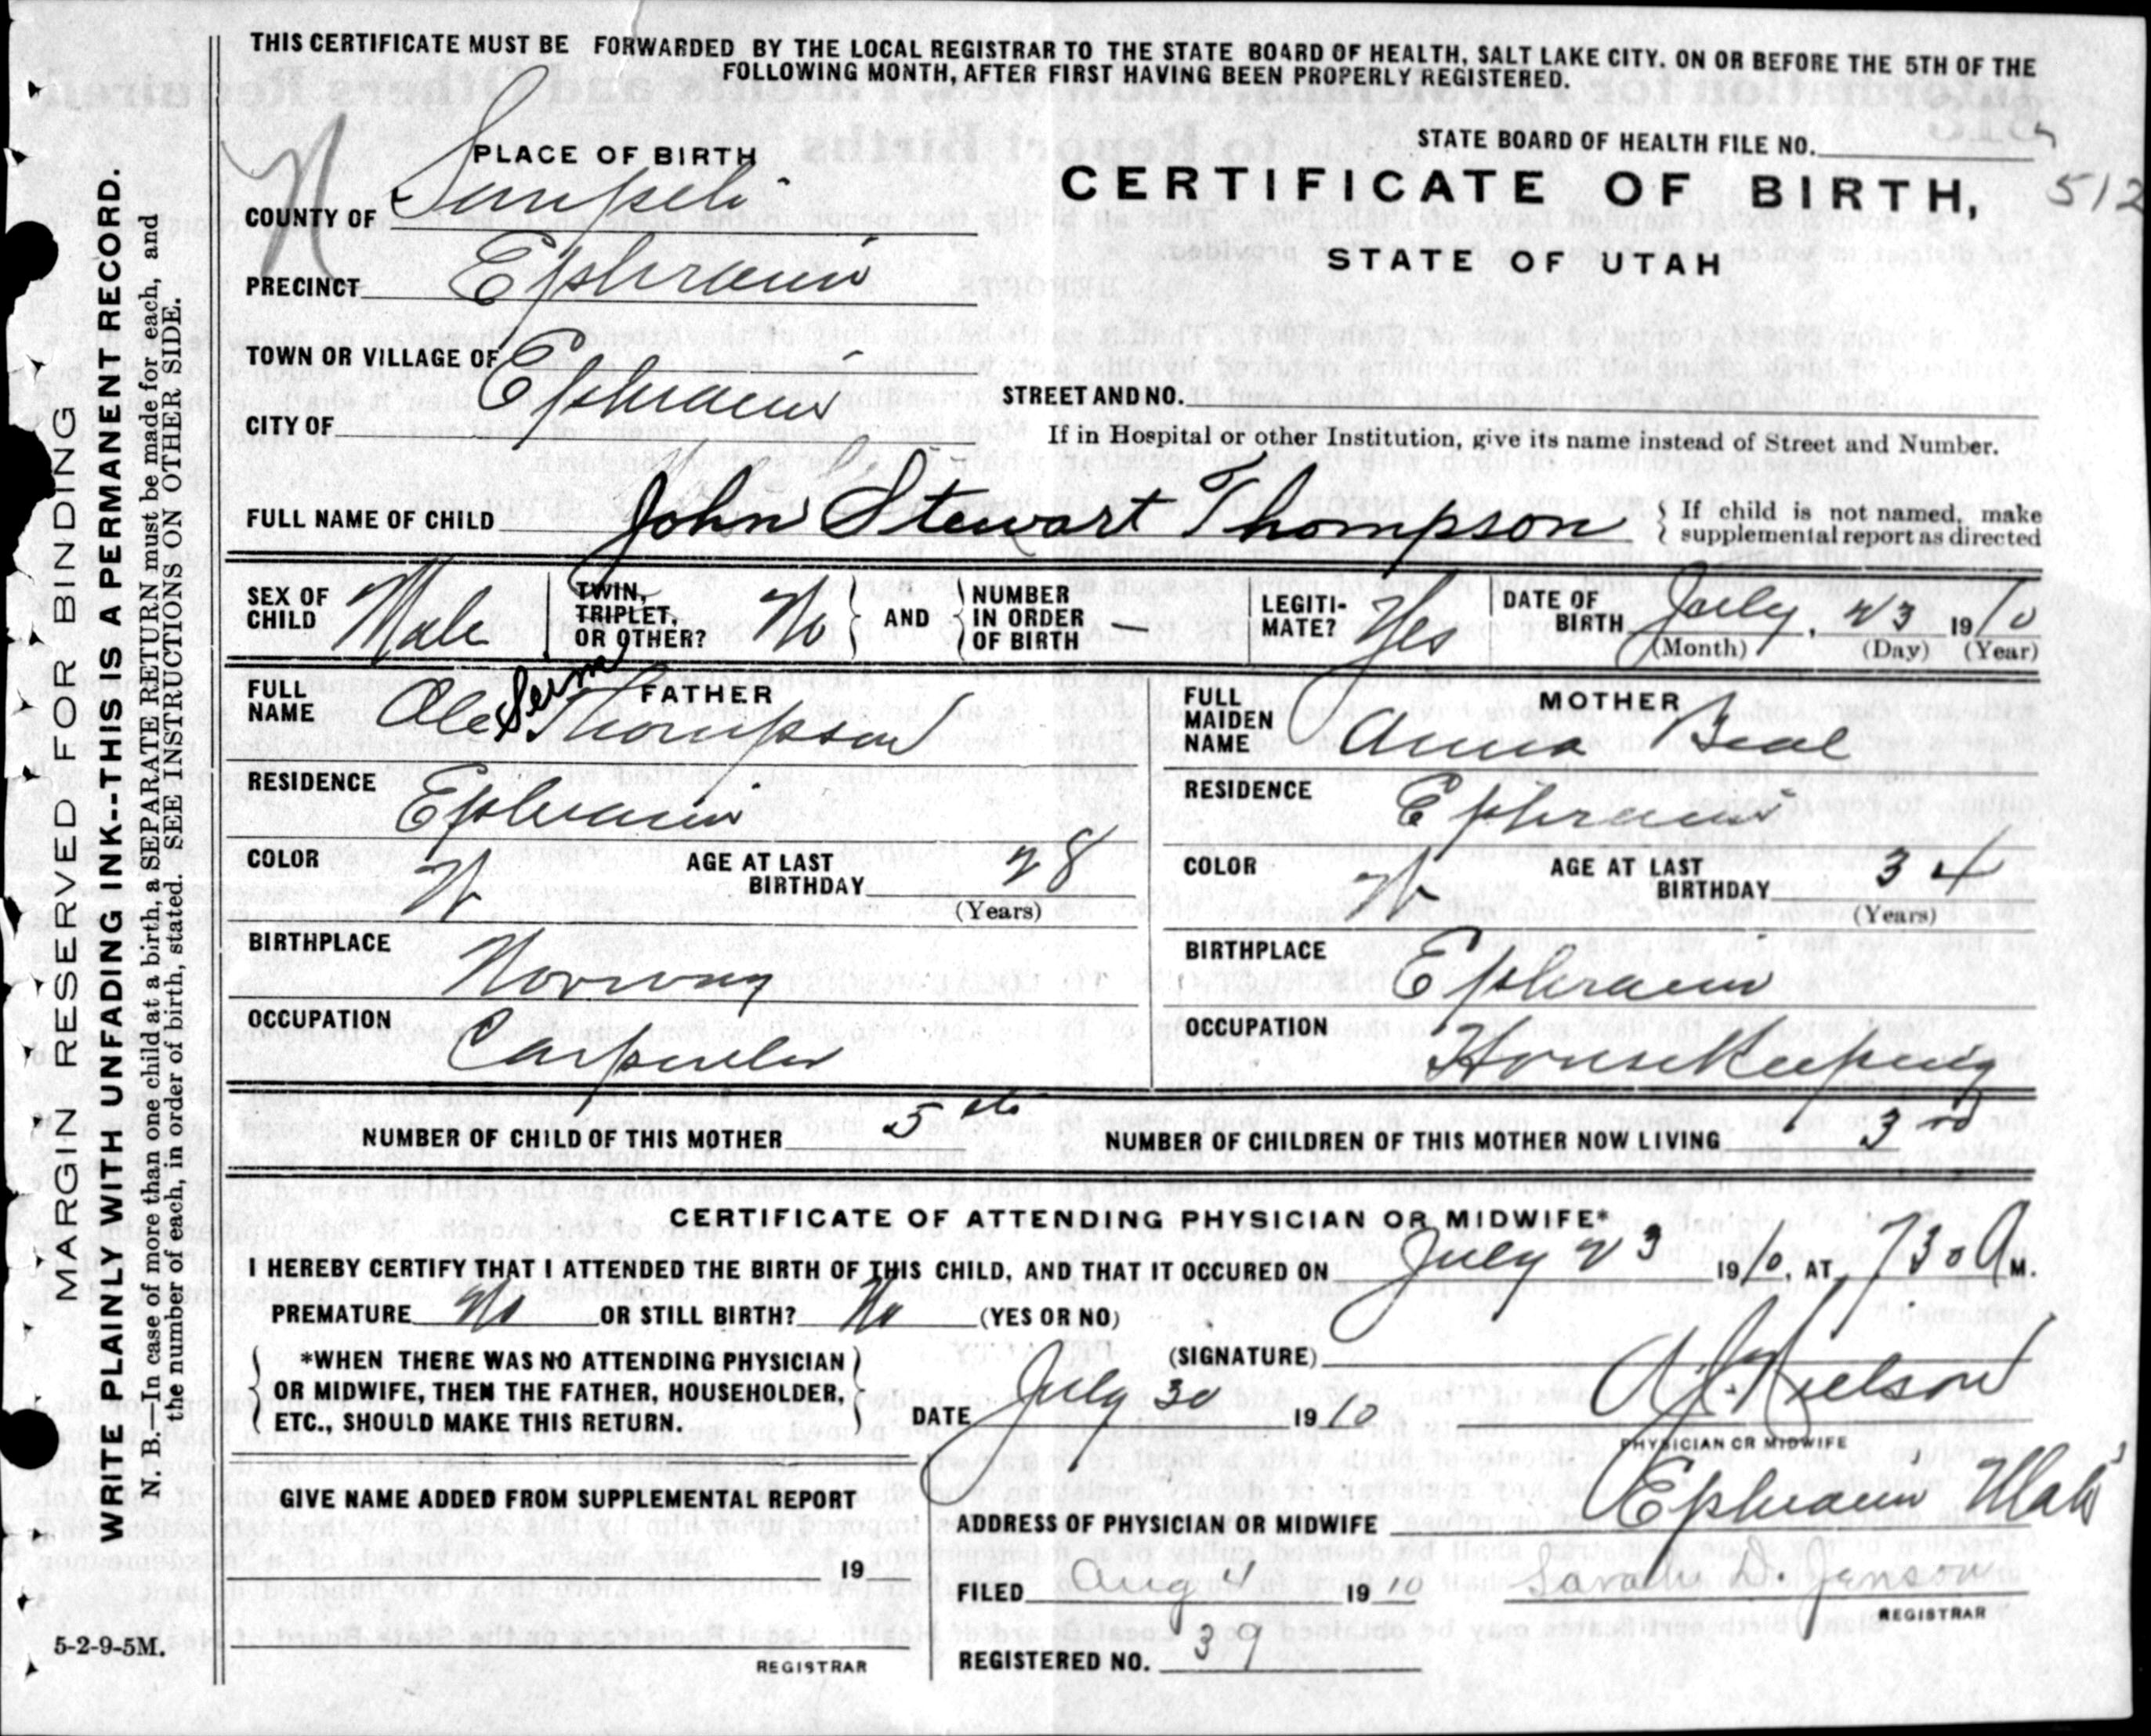 THIS CERTIFICATE MUST BE FORWARDED BY THE LOCAL REGISTRAR TO THE STATE BOARD OF HEALTH, SALT LAKE CITY, ON OR BEFORE THE 5TH OF THE
FOLLOWING MONTH, AFTER FIRST HAVING BEEN PROPERLY REGISTERED.
N
PLACE OF BIRTH
STATE BOARD OF HEALTH FILE NO.
512
CERTIFICATE OF BIRTH,
STATE OF UTAH
COUNTY OF Sanpete
PRECINCT Ephraim
TOWN OR VILLAGE OF
CITY OF Ephraim
STREET AND NO.
If in Hospital or other Institution, give its name instead of Street and Number.
FULL NAME OF CHILD John Stewart Thompson { If child is not named, make
supplemental report as directed
SEX OF CHILD Male
TWIN, TRIPLET, OR OTHER? No } AND { NUMBER IN ORDER OF BIRTH —
LEGITIMATE? Yes
DATE OF BIRTH July, 23 1910
(Month) (Day) (Year)
FATHER
FULL NAME Alex Thompson
RESIDENCE Ephraim
COLOR W AGE AT LAST BIRTHDAY 28
(Years)
BIRTHPLACE Norway
OCCUPATION Carpenter
MOTHER
FULL MAIDEN NAME Anna Beal
RESIDENCE Ephraim
COLOR W AGE AT LAST BIRTHDAY 34
(Years)
BIRTHPLACE Ephraim
OCCUPATION HouseKeeping
NUMBER OF CHILD OF THIS MOTHER 5th NUMBER OF CHILDREN OF THIS MOTHER NOW LIVING 3rd
CERTIFICATE OF ATTENDING PHYSICIAN OR MIDWIFE*
I HEREBY CERTIFY THAT I ATTENDED THE BIRTH OF THIS CHILD, AND THAT IT OCCURED ON July 23 1910, AT 730 A M.
PREMATURE No OR STILL BIRTH? No (YES OR NO)
*WHEN THERE WAS NO ATTENDING PHYSICIAN
OR MIDWIFE, THEN THE FATHER, HOUSEHOLDER,
ETC., SHOULD MAKE THIS RETURN.
(SIGNATURE) Nielson
DATE July 30 1910
PHYSICIAN OR MIDWIFE
GIVE NAME ADDED FROM SUPPLEMENTAL REPORT
19
REGISTRAR
ADDRESS OF PHYSICIAN OR MIDWIFE Ephraim Utah
FILED Aug 4 1910 Sarah D. Jenson
REGISTRAR
REGISTERED NO. 39
5-2-9-5M.
MARGIN RESERVED FOR BINDING
WRITE PLAINLY WITH UNFADING INK--THIS IS A PERMANENT RECORD.
N. B.—In case of more than one child at a birth, a SEPARATE RETURN must be made for each, and
the number of each, in order of birth, stated. SEE INSTRUCTIONS ON OTHER SIDE.